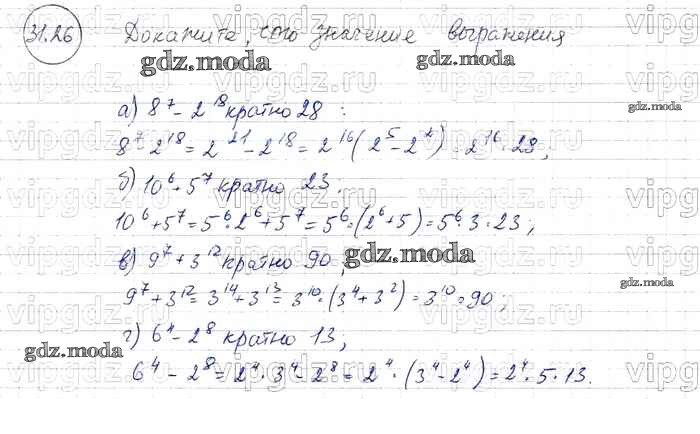 31.26 Докажите, что значение выражения
gdz.moda
gdz.moda
а) 8^7 - 2^18 кратно 28 :
gdz.moda
8^7 2^18 = 2^21 - 2^18 = 2^16 (2^5 - 2^2) = 2^16 · 28;
б) 10^6 + 5^7 кратно 23.
10^6 + 5^7 = 5^6 · 2^6 + 5^7 = 5^6 · (2^6 + 5) = 5^6 · 3 · 23;
gdz.moda
в) 9^7 + 3^12 кратно 90;
9^7 + 3^12 = 3^14 + 3^13 = 3^10 · (3^4 + 3^2) = 3^10 · 90;
gdz.moda
г) 6^4 - 2^8 кратно 13;
gdz.moda
6^4 - 2^8 = 2^4 · 3^4 - 2^8 = 2^4 · (3^4 - 2^4) = 2^4 · 5 · 13.
gdz.moda